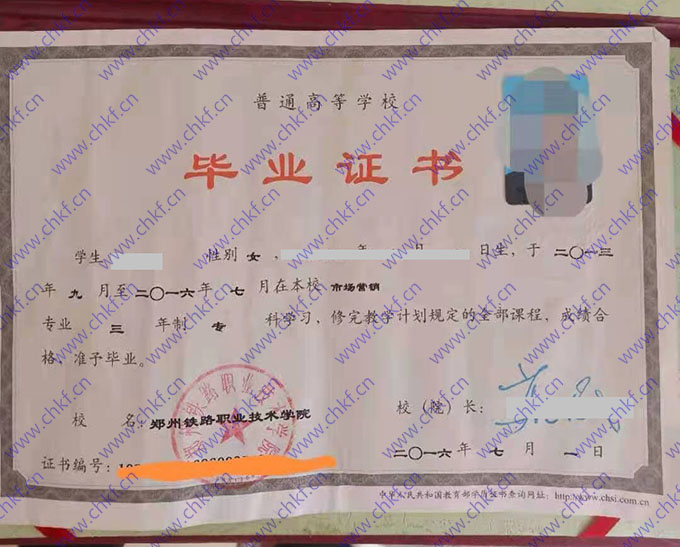 普通高等学校
毕业证书
学生 性别 女 , 年 月 日生,于 二〇一三
年 九 月至二〇一六年 七 月在本校 市场营销
专业 三 年制 专 科学习、修完教学计划规定的全部课程,成绩合
格,准予毕业。
校 名: 郑州铁路职业技术学院
校(院)长:
证书编号:
二〇一六年 七 月 一 日
中华人民共和国教育部学历证书查询网址: http://www.chsi.com.cn
www.chkf.cn